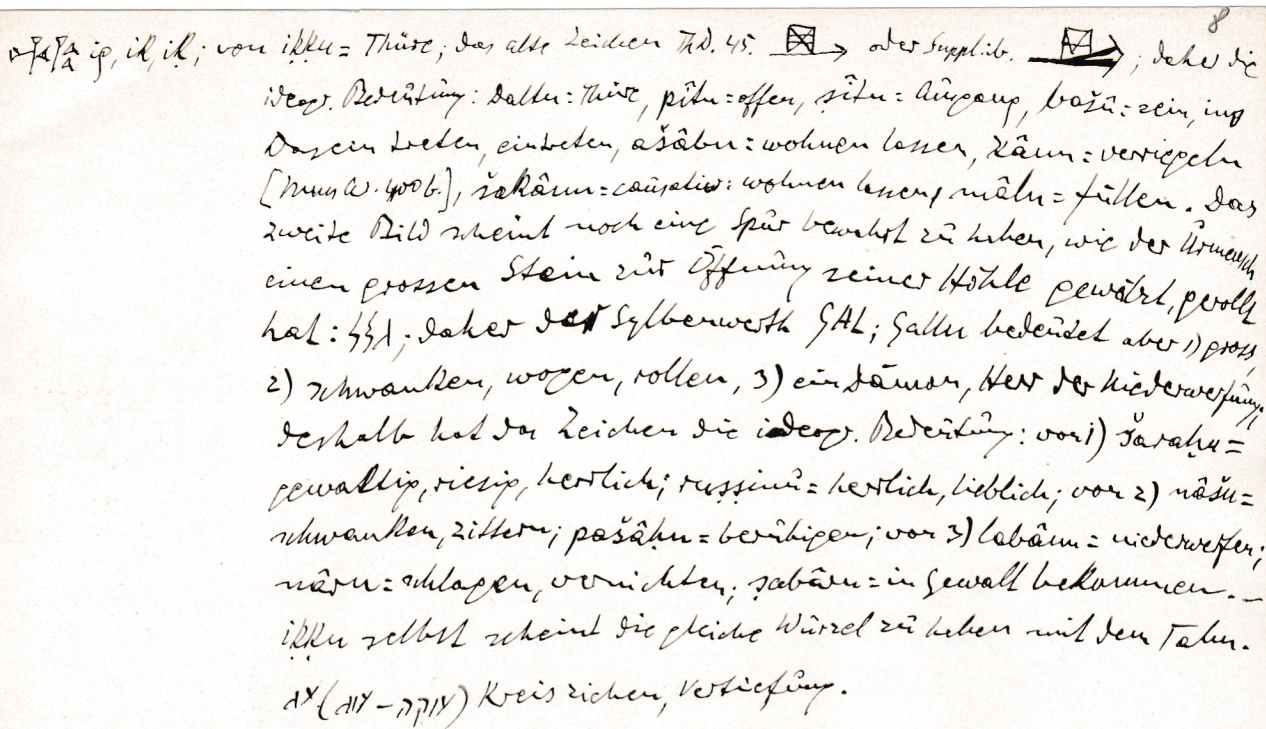 8
ig, ik, iḳ; von iḳḳu = Thüre; das alte Zeichen Th.D. 45. oder Suppl.ib. ; daher die
ideogr. Bedeutung: Daltu = Thüre, pîtu = offen, ṣîtu = Ausgang, bašû = sein, ins
Dasein treten, eintreten, ašâbu = wohnen lassen, = verriegeln
400b.], šakânu = causativ: wohnen lassen, malu = füllen. Das
zweite Bild scheint noch eine Spur bewahrt zu haben, wie der Urmensch
einen grossen Stein zur Öffnung seiner Höhle gewälzt, gerollt
hat: גלל; daher der Sylbenwerth GAL; Gallu bedeutet aber 1) gross,
2) schwanken, wogen, rollen, 3) ein Dämon, Herr der Niederwerfung,
deshalb hat das Zeichen die ideogr. Bedeutung: von 1) šaraḫu =
gewaltig, riesig, herrlich; ruṣṣunû = herrlich, lieblich; von 2) nâšu =
schwanken, zittern; pašâḫu = beruhigen; von 3) labânu = niederwerfen;
nâru = schlagen, vernichten; ṣabâru = in Gewalt bekommen. –
iḳḳu selbst scheint die gleiche Wurzel zu haben mit dem Talm.
עג (עוג – עוקה) Kreis ziehen, Vertiefung.